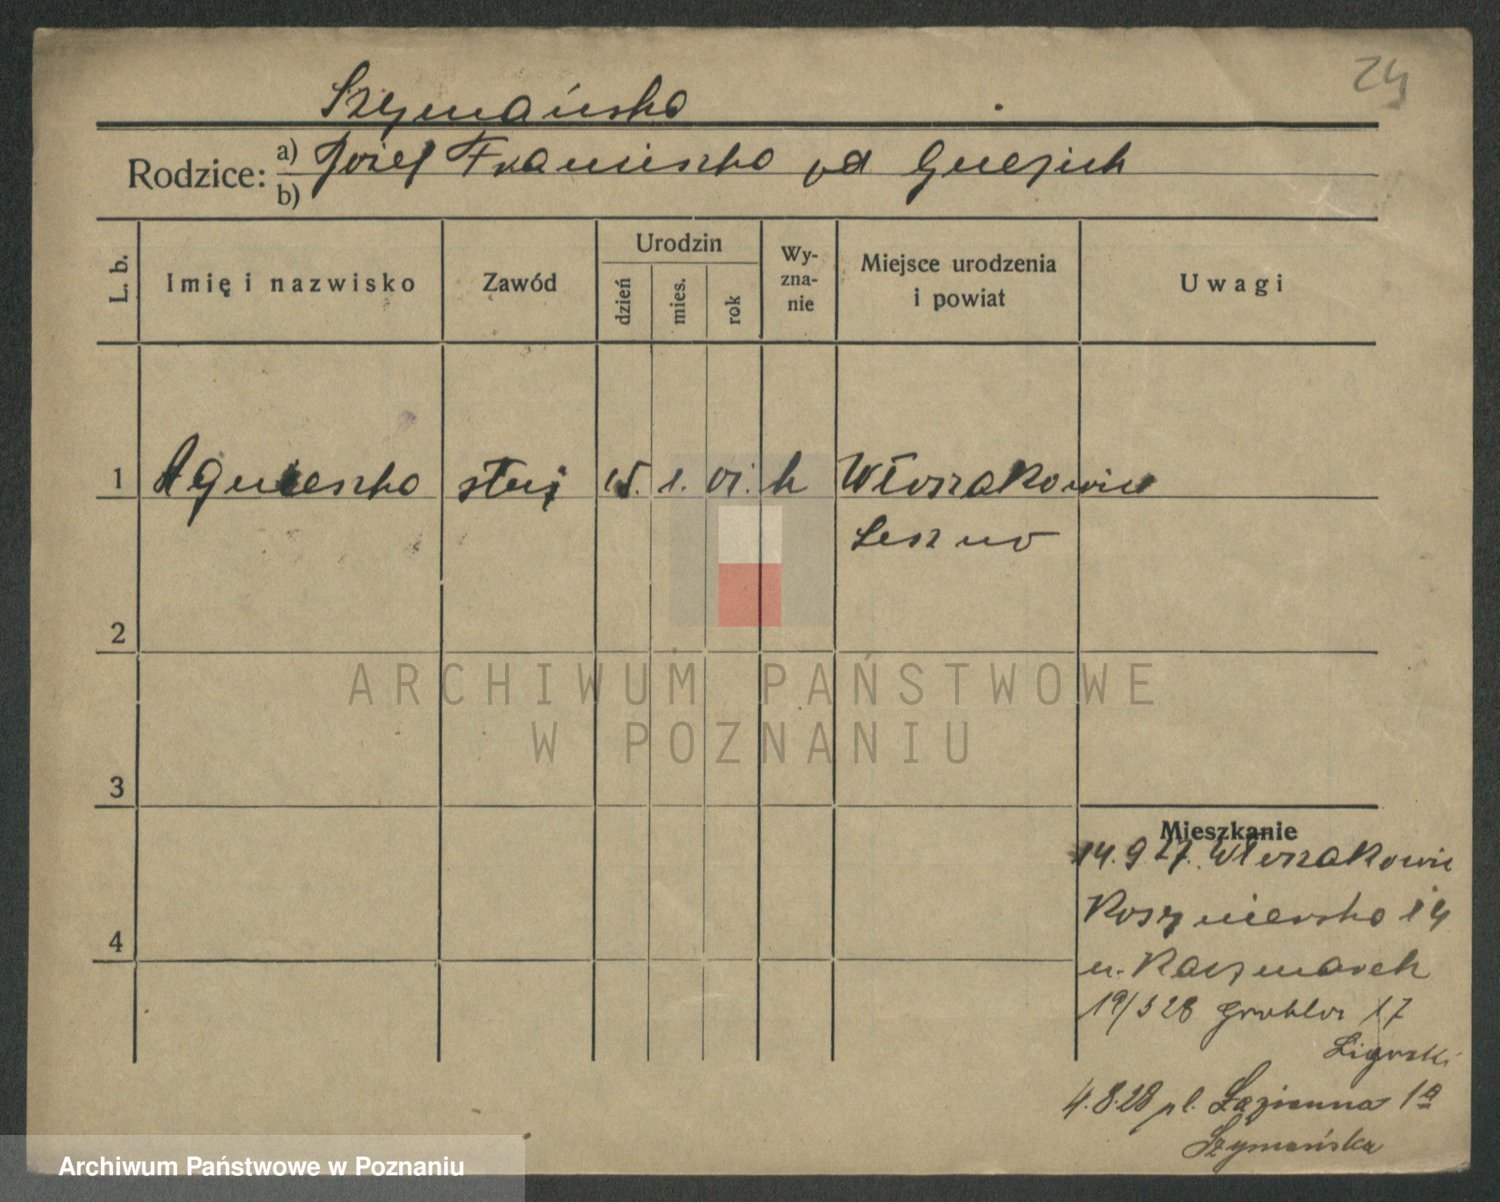 24
Szymańska
Rodzice: a) Józef Franciszka od
b)
L. b.
Imię i nazwisko
Zawód
Urodzin
dzień
mies.
rok
Wy-
zna-
nie
Miejsce urodzenia
i powiat
Uwagi
1 Agnieszka służ 15. 1. 01. k Włoszakowice
Leszno
2
ARCHIWUM PAŃSTWOWE
W POZNANIU
3
Mieszkanie
14.9 27. Włoszakowic
4
u. Kaczmarek
19/5 28 Grobla 17
Ligorski
4.8.28 pl. Łazienna 1a
Szymańska
Archiwum Państwowe w Poznaniu